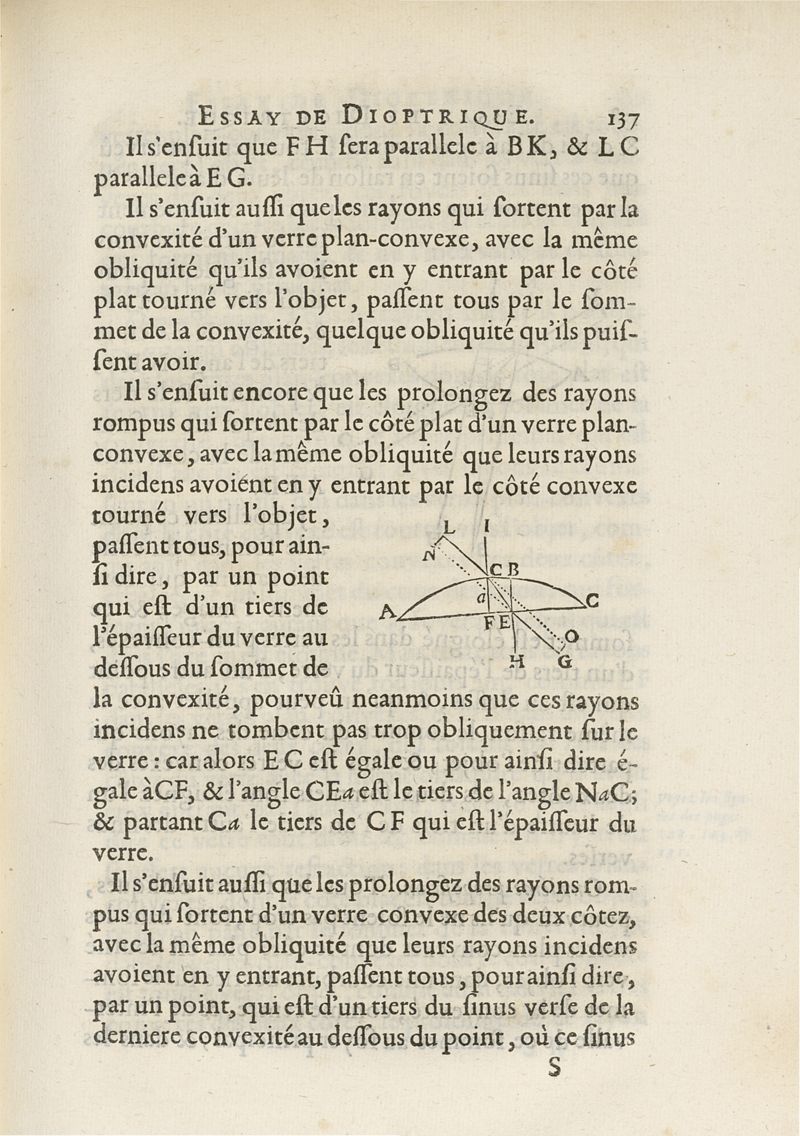 ESSAY DE DIOPTRIQUE. 137
Il s'enſuit que F H ſera parallele à B K, & L C
parallele à E G.
Il s'enſuit auſſi que les rayons qui ſortent par la
convexité d'un verre plan-convexe, avec la même
obliquité qu'ils avoient en y entrant par le côté
plat tourné vers l'objet, paſſent tous par le ſom-
met de la convexité, quelque obliquité qu'ils puiſ-
ſent avoir.
Il s'enſuit encore que les prolongez des rayons
rompus qui ſortent par le côté plat d'un verre plan-
convexe, avec la même obliquité que leurs rayons
incidens avoient en y entrant par le côté convexe
tourné vers l'objet,
paſſent tous, pour ain-
ſi dire, par un point
qui eſt d'un tiers de
l'épaiſſeur du verre au
deſſous du ſommet de
L I
N
C B
a
A C
F E
O
H G
la convexité, pourveû neanmoins que ces rayons
incidens ne tombent pas trop obliquement ſur le
verre : car alors E C eſt égale ou pour ainſi dire é-
gale à CF, & l'angle CEa eſt le tiers de l'angle NaC;
& partant Ca le tiers de C F qui eſt l'épaiſſeur du
verre.
Il s'enſuit auſſi que les prolongez des rayons rom-
pus qui ſortent d'un verre convexe des deux côtez,
avec la même obliquité que leurs rayons incidens
avoient en y entrant, paſſent tous, pour ainſi dire,
par un point, qui eſt d'un tiers du ſinus verſe de la
derniere convexité au deſſous du point, où ce ſinus
S